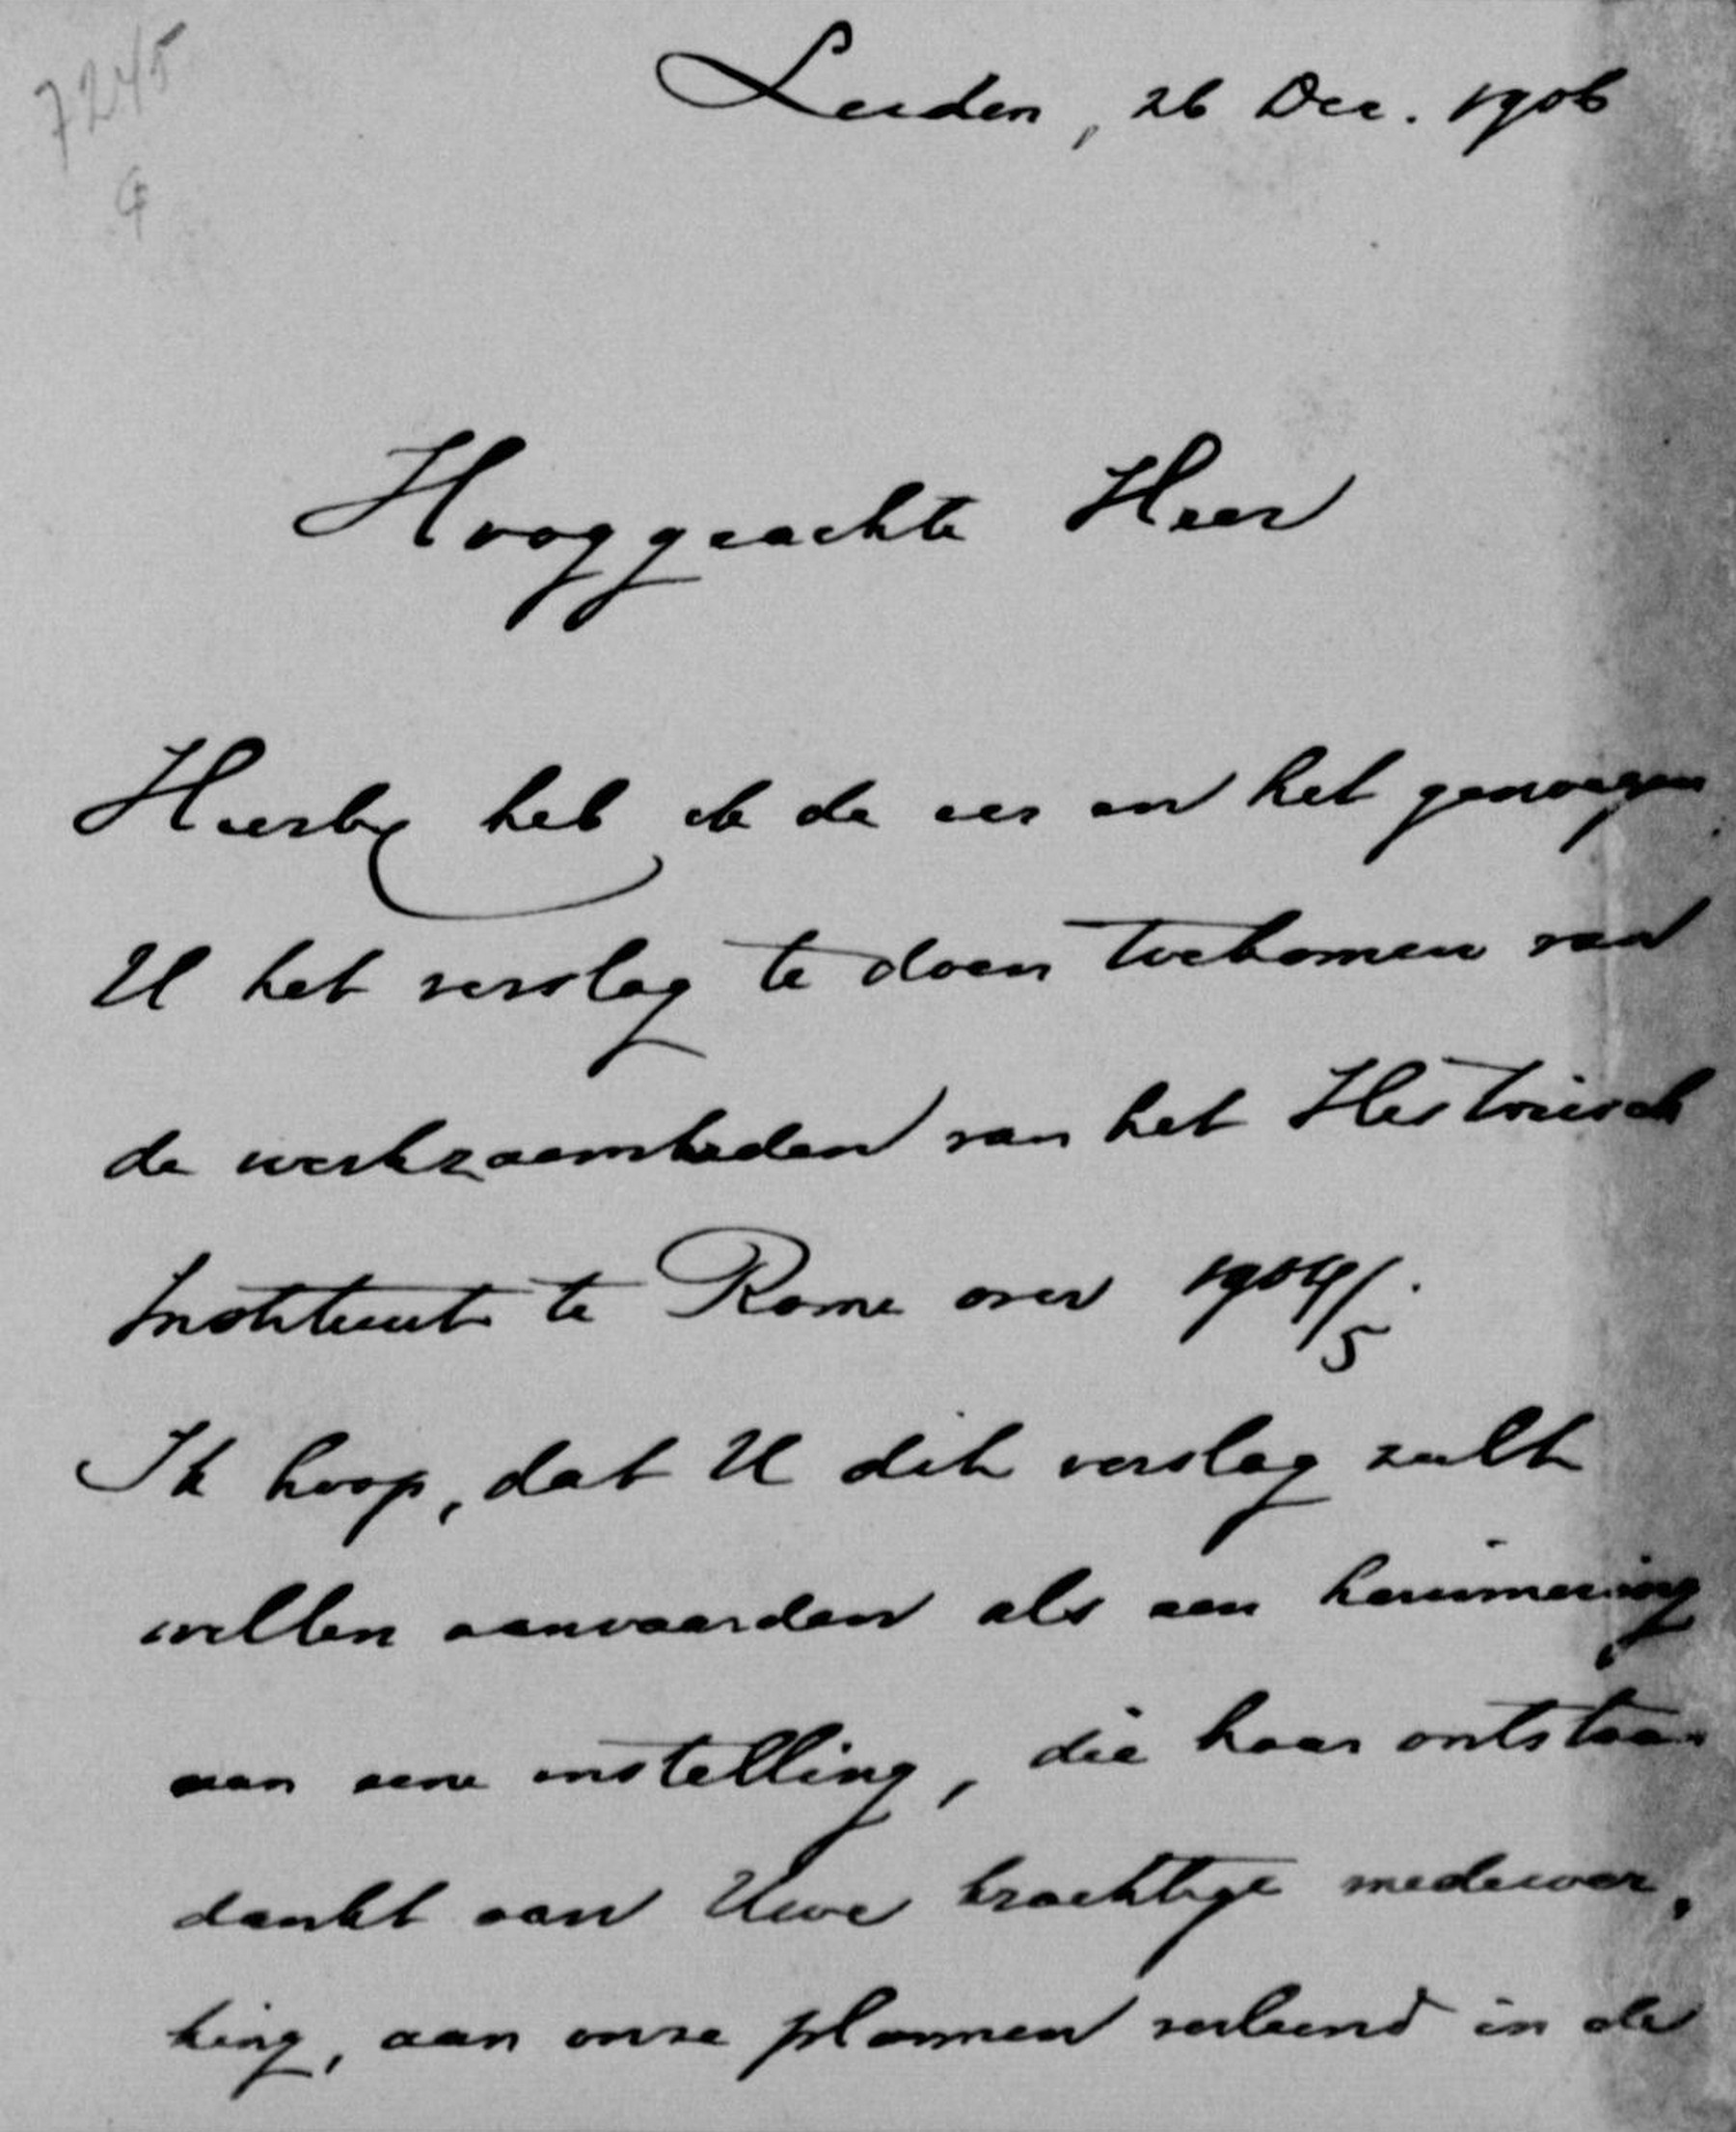 7245
G
Leiden, 26 Dec. 1906
Hooggeachte Heer
Hierbij heb ik de eer en het genoegen
U het verslag te doen toekomen van
de werkzaamheden van het Historisch
Instituut te Rome over 1904/5.
Ik hoop, dat U dit verslag zult
willen aanvaarden als een herinnering
aan eene instelling, die haar ontstaan
dankt aan Uwe krachtige medewer-
king, aan onze plannen verleend in de